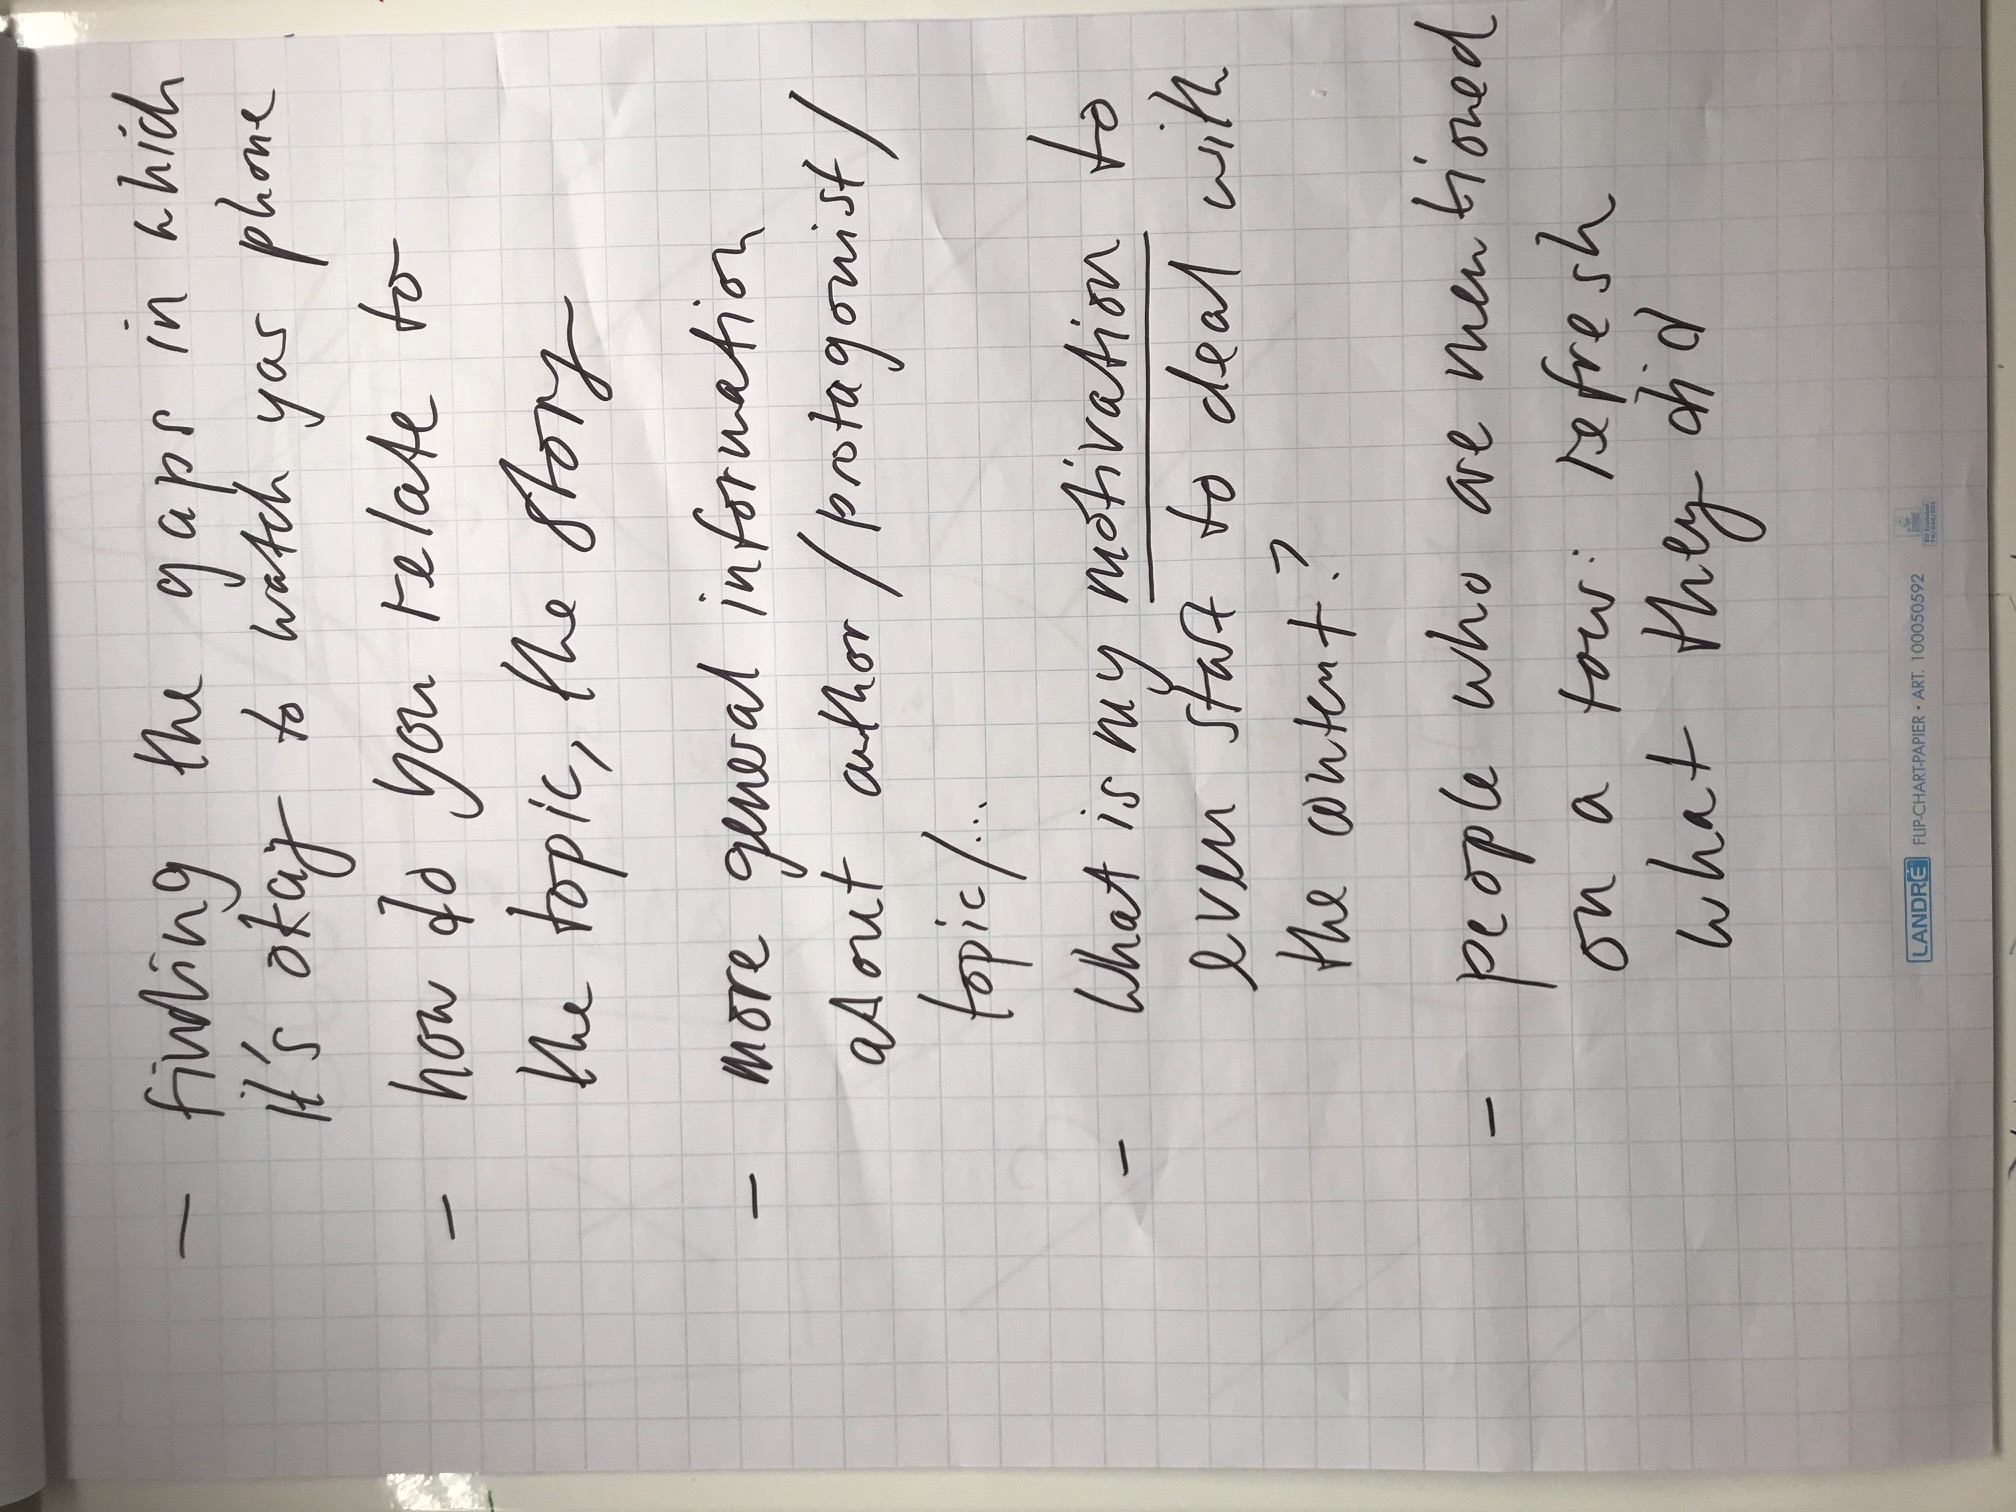 - finding the gaps in which
it's okay to watch yar phone
- how do you relate to
the topic, the story
- more general information
about author / protagonist /
topic /...
- What is my motivation to
even start to deal with
the content?
- people who are mentioned
on a tour: refresh
what they did
LANDRÉ FLIP-CHART-PAPIER • ART. 100050592